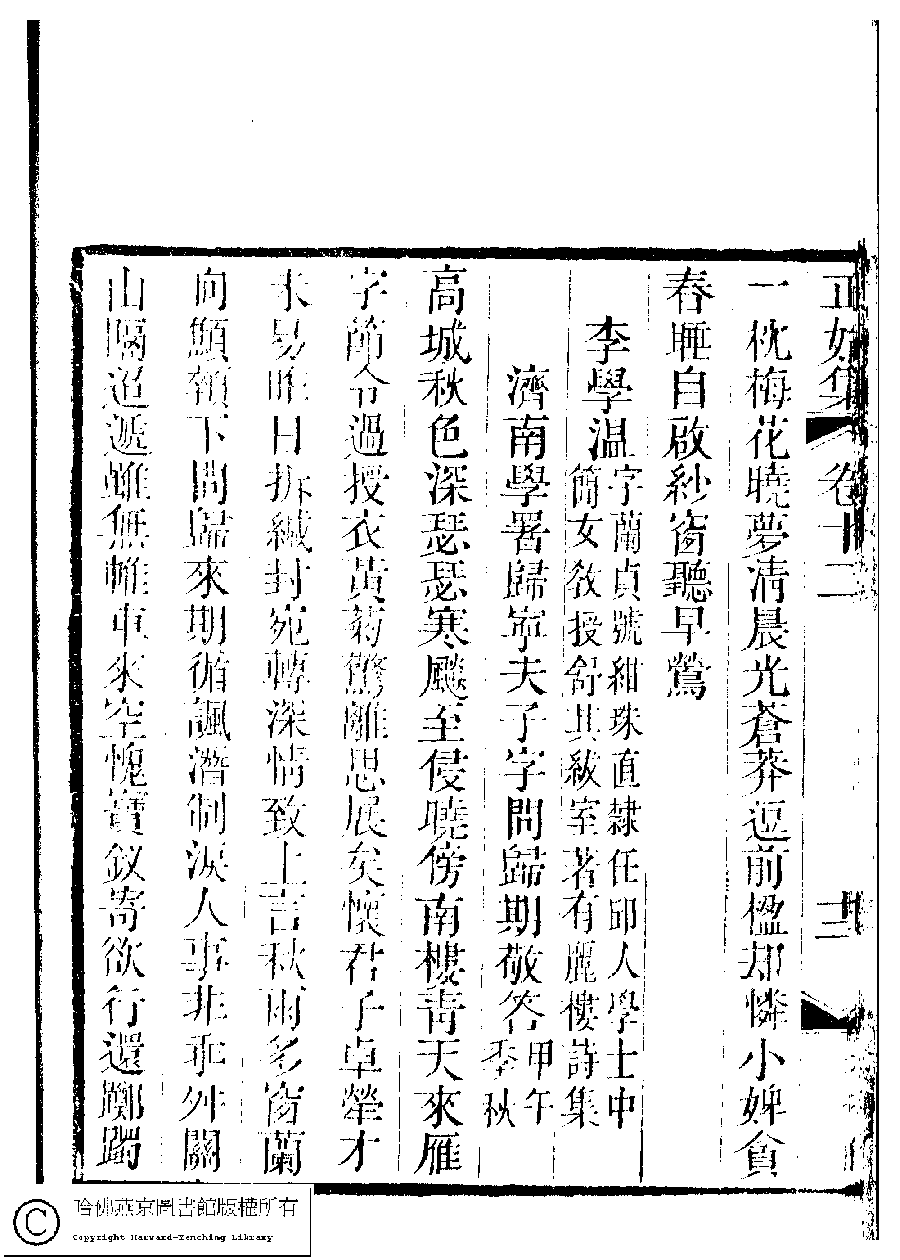 正始集 卷十二 三
一枕梅花曉夢清晨光蒼莽逗前楹却憐小婢貪
春睡自啟紗窗聽早鶯
李學温字蘭貞號紺珠直隸任邱人學士中
簡女教授舒其紱室著有麗樓詩集
濟南學署歸寧夫子字問歸期敬答甲午
季秋
高城秋色深瑟瑟寒颸至侵曉傍南樓靑天來雁
字節令過授衣黃菊驚離思展矣懷君子卓犖才
未易昨日拆緘封宛轉深情致上言秋雨多窗蘭
向顦顇下問歸來期循諷潛制淚人事非乖舛關
山隔迢遞雖無帷車來空愧寶釵寄欲行還躑躅
哈佛燕京圖書館版權所有
Copyright Harvard-Yenching Library